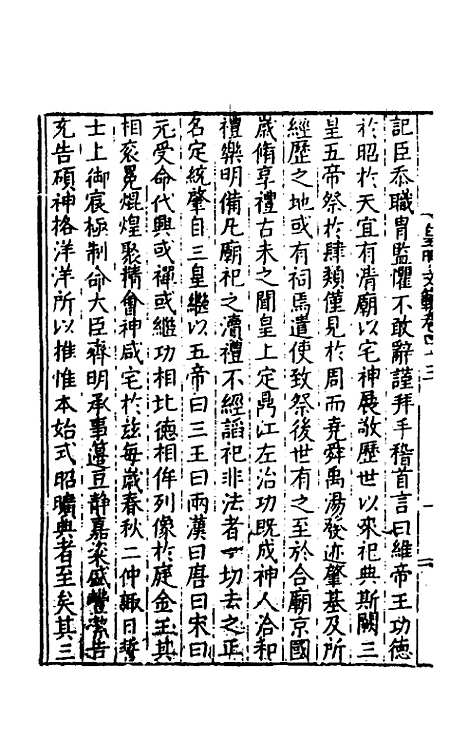 皇明文衡卷四十三
記臣忝職胄監懼不敢辭謹拜手稽首言曰維帝王功德
於昭於天宜有清廟以宅神展敬歷世以來祀典斯闕三
皇五帝祭於肆類僅見於周而堯舜禹湯發迹肇基及所
經歷之地或有祠焉遣使致祭後世有之至於合廟京國
歲脩享禮古未之聞皇上定鼎江左治功既成神人洽和
禮樂明備凡廟祀之瀆禮不經謟祀非法者一切去之正
名定統肇自三皇繼以五帝曰三王曰兩漢曰唐曰宋曰
元受命代興或禪或繼功相比德相侔列像於庭金玉其
相衮冕焜煌聚㨗會神咸宅於茲每歲春秋二仲諏日誓
士上御宸極制命大臣齊明承事籩豆靜嘉粢盛豐潔告
充告碩神格洋洋所以推惟本始式昭曠典者至矣其三